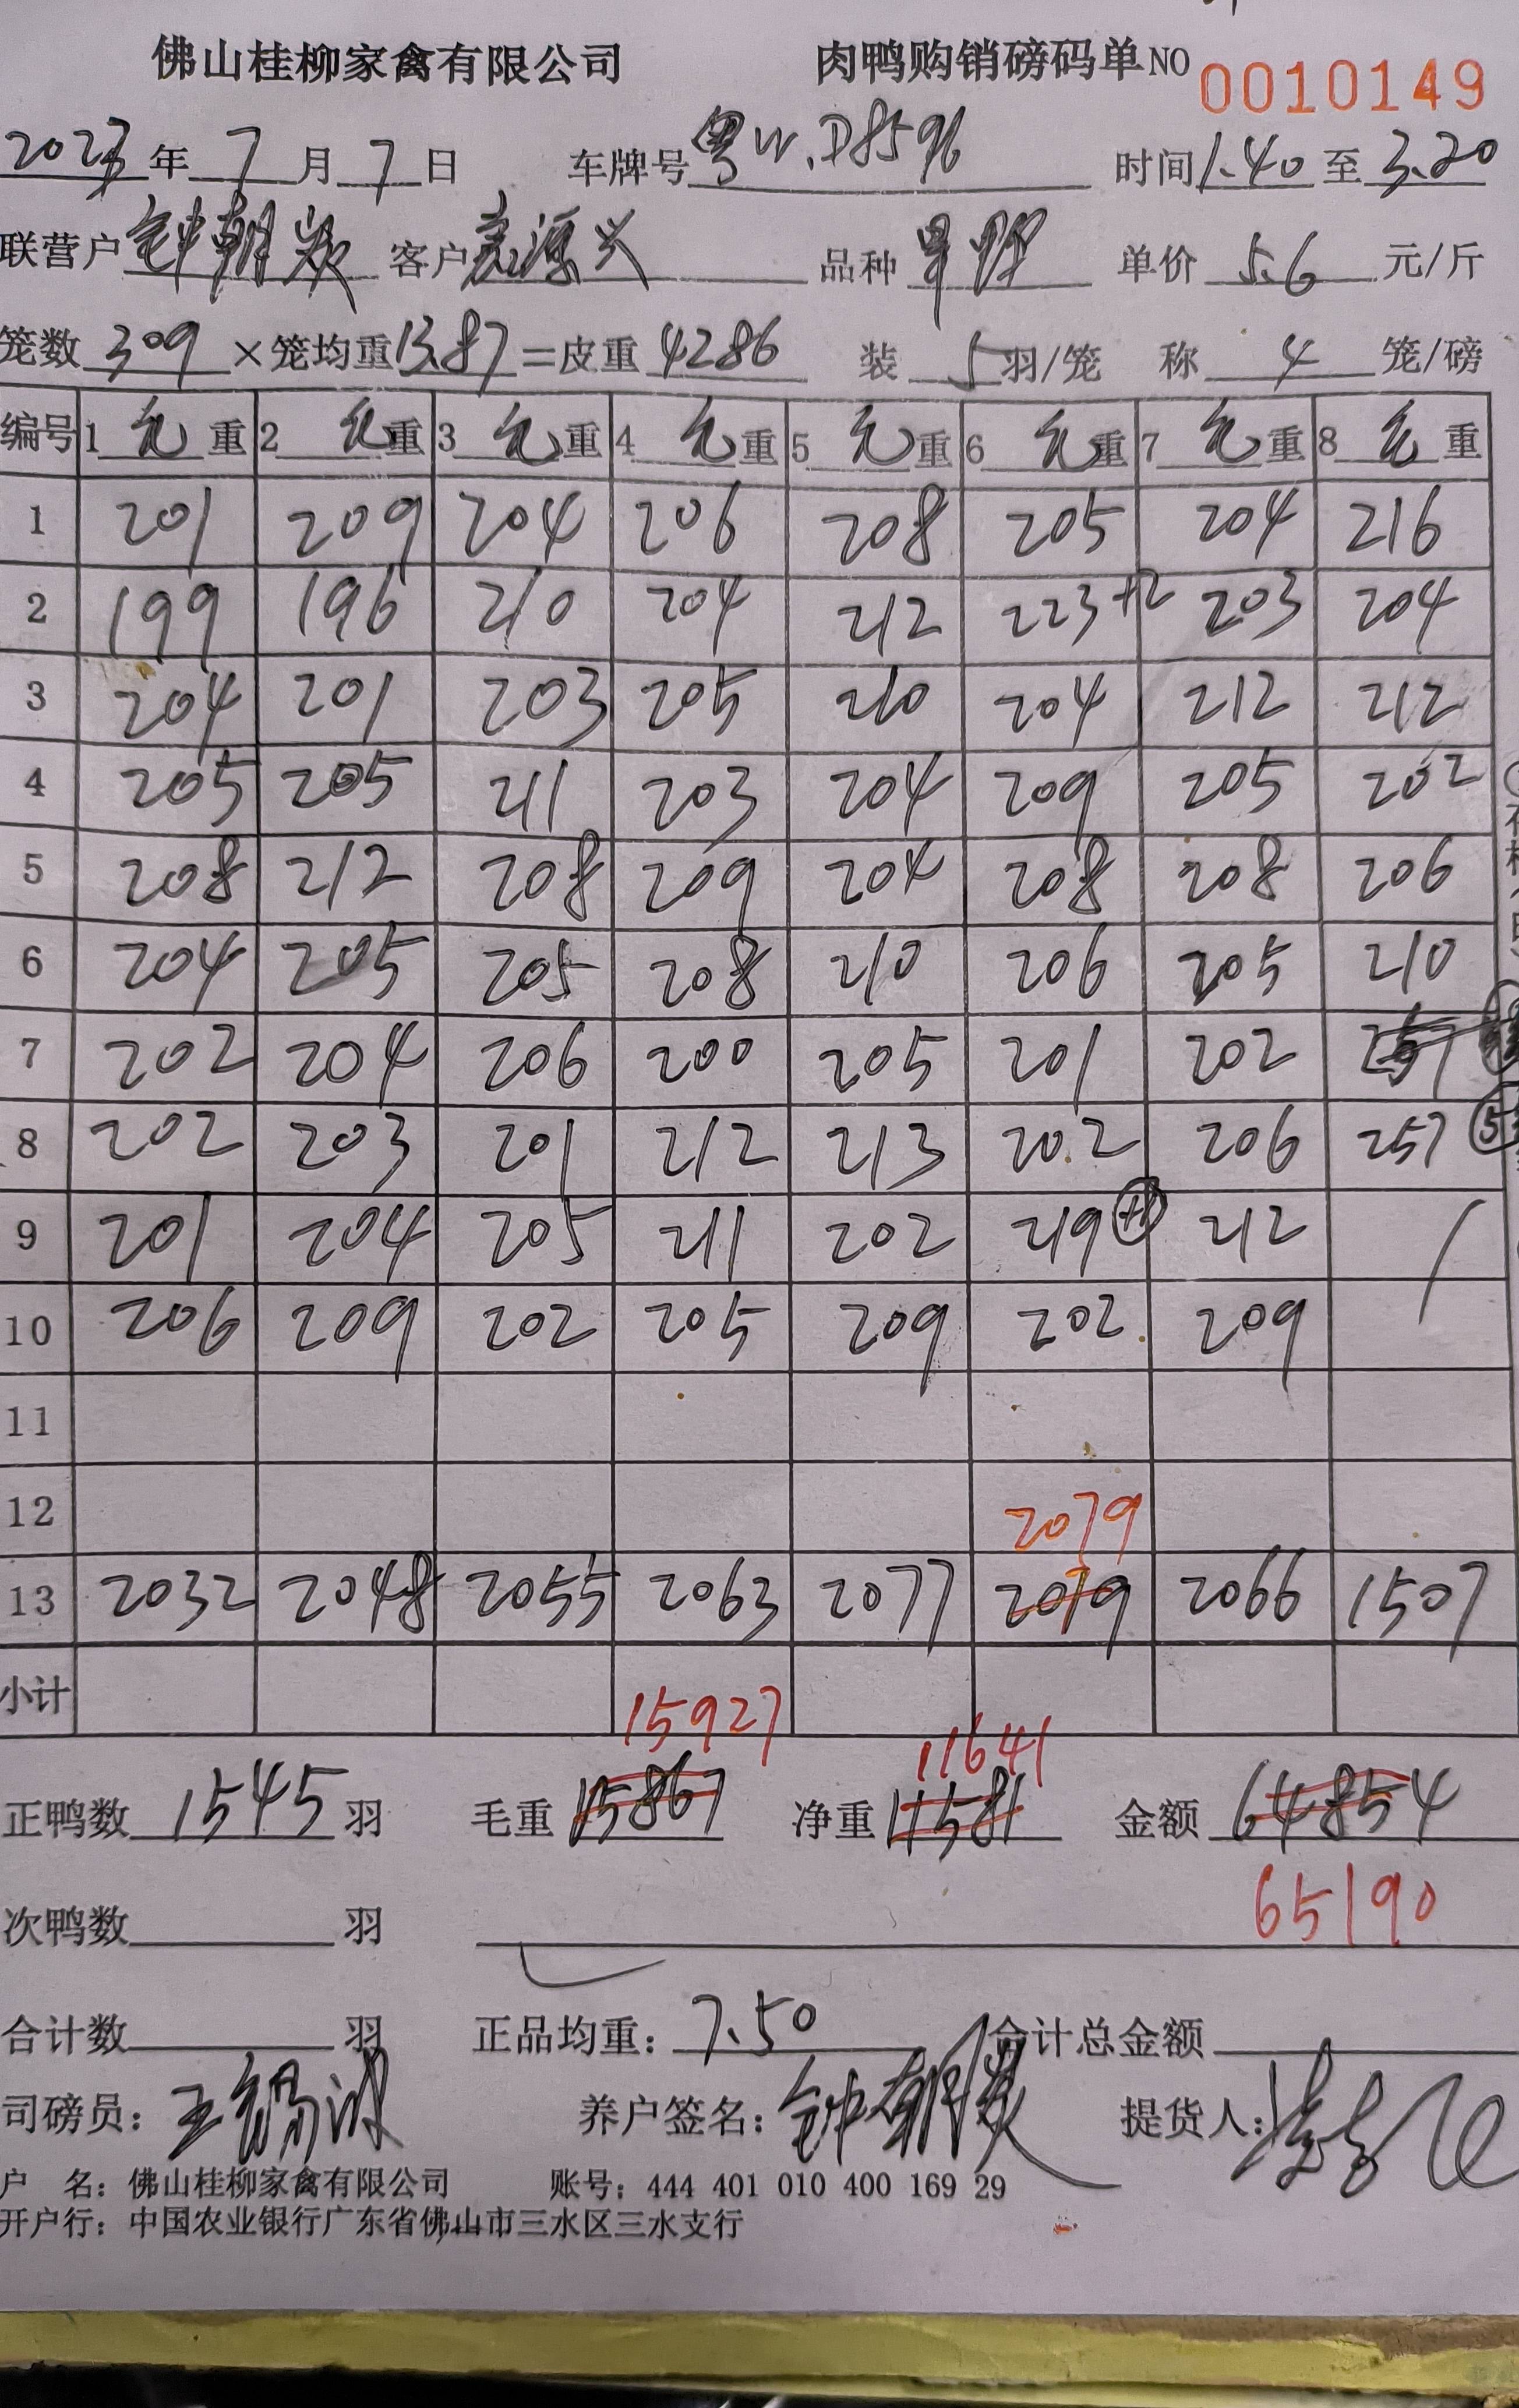 佛山桂柳家禽有限公司 肉鸭购销磅码单NO 0010149
2023年7月7日 车牌号粤W.D8596 时间1.40至3.20
联营户钟朝 客户源兴 品种 单价5.6元/斤
笼数309×笼均重13.87=皮重4286 装5羽/笼 称4笼/磅
编号 1毛重 2毛重 3毛重 4毛重 5毛重 6毛重 7毛重 8毛重
1 201 209 204 206 208 205 204 216
2 199 196 210 204 212 223+2 203 204
3 204 201 203 205 210 204 212 212
4 205 205 211 203 204 209 205 202
5 208 212 208 209 204 208 208 206
6 204 205 205 208 210 206 205 210
7 202 204 206 200 205 201 202
8 202 203 201 212 213 202 206 257 ⑤
9 201 204 205 211 202 219+1 212 /
10 206 209 202 205 209 202 209
11
12 2079
13 2032 2048 2055 2063 2077 2019 2066 1507
小计
15927 11641
正鸭数1545羽 毛重15867 净重11581 金额64854
65190
次鸭数 羽
合计数 羽 正品均重：7.50 合计总金额
司磅员：王锡波 养户签名：钟朝 提货人：
户 名：佛山桂柳家禽有限公司 账号：444 401 010 400 169 29
开户行：中国农业银行广东省佛山市三水区三水支行